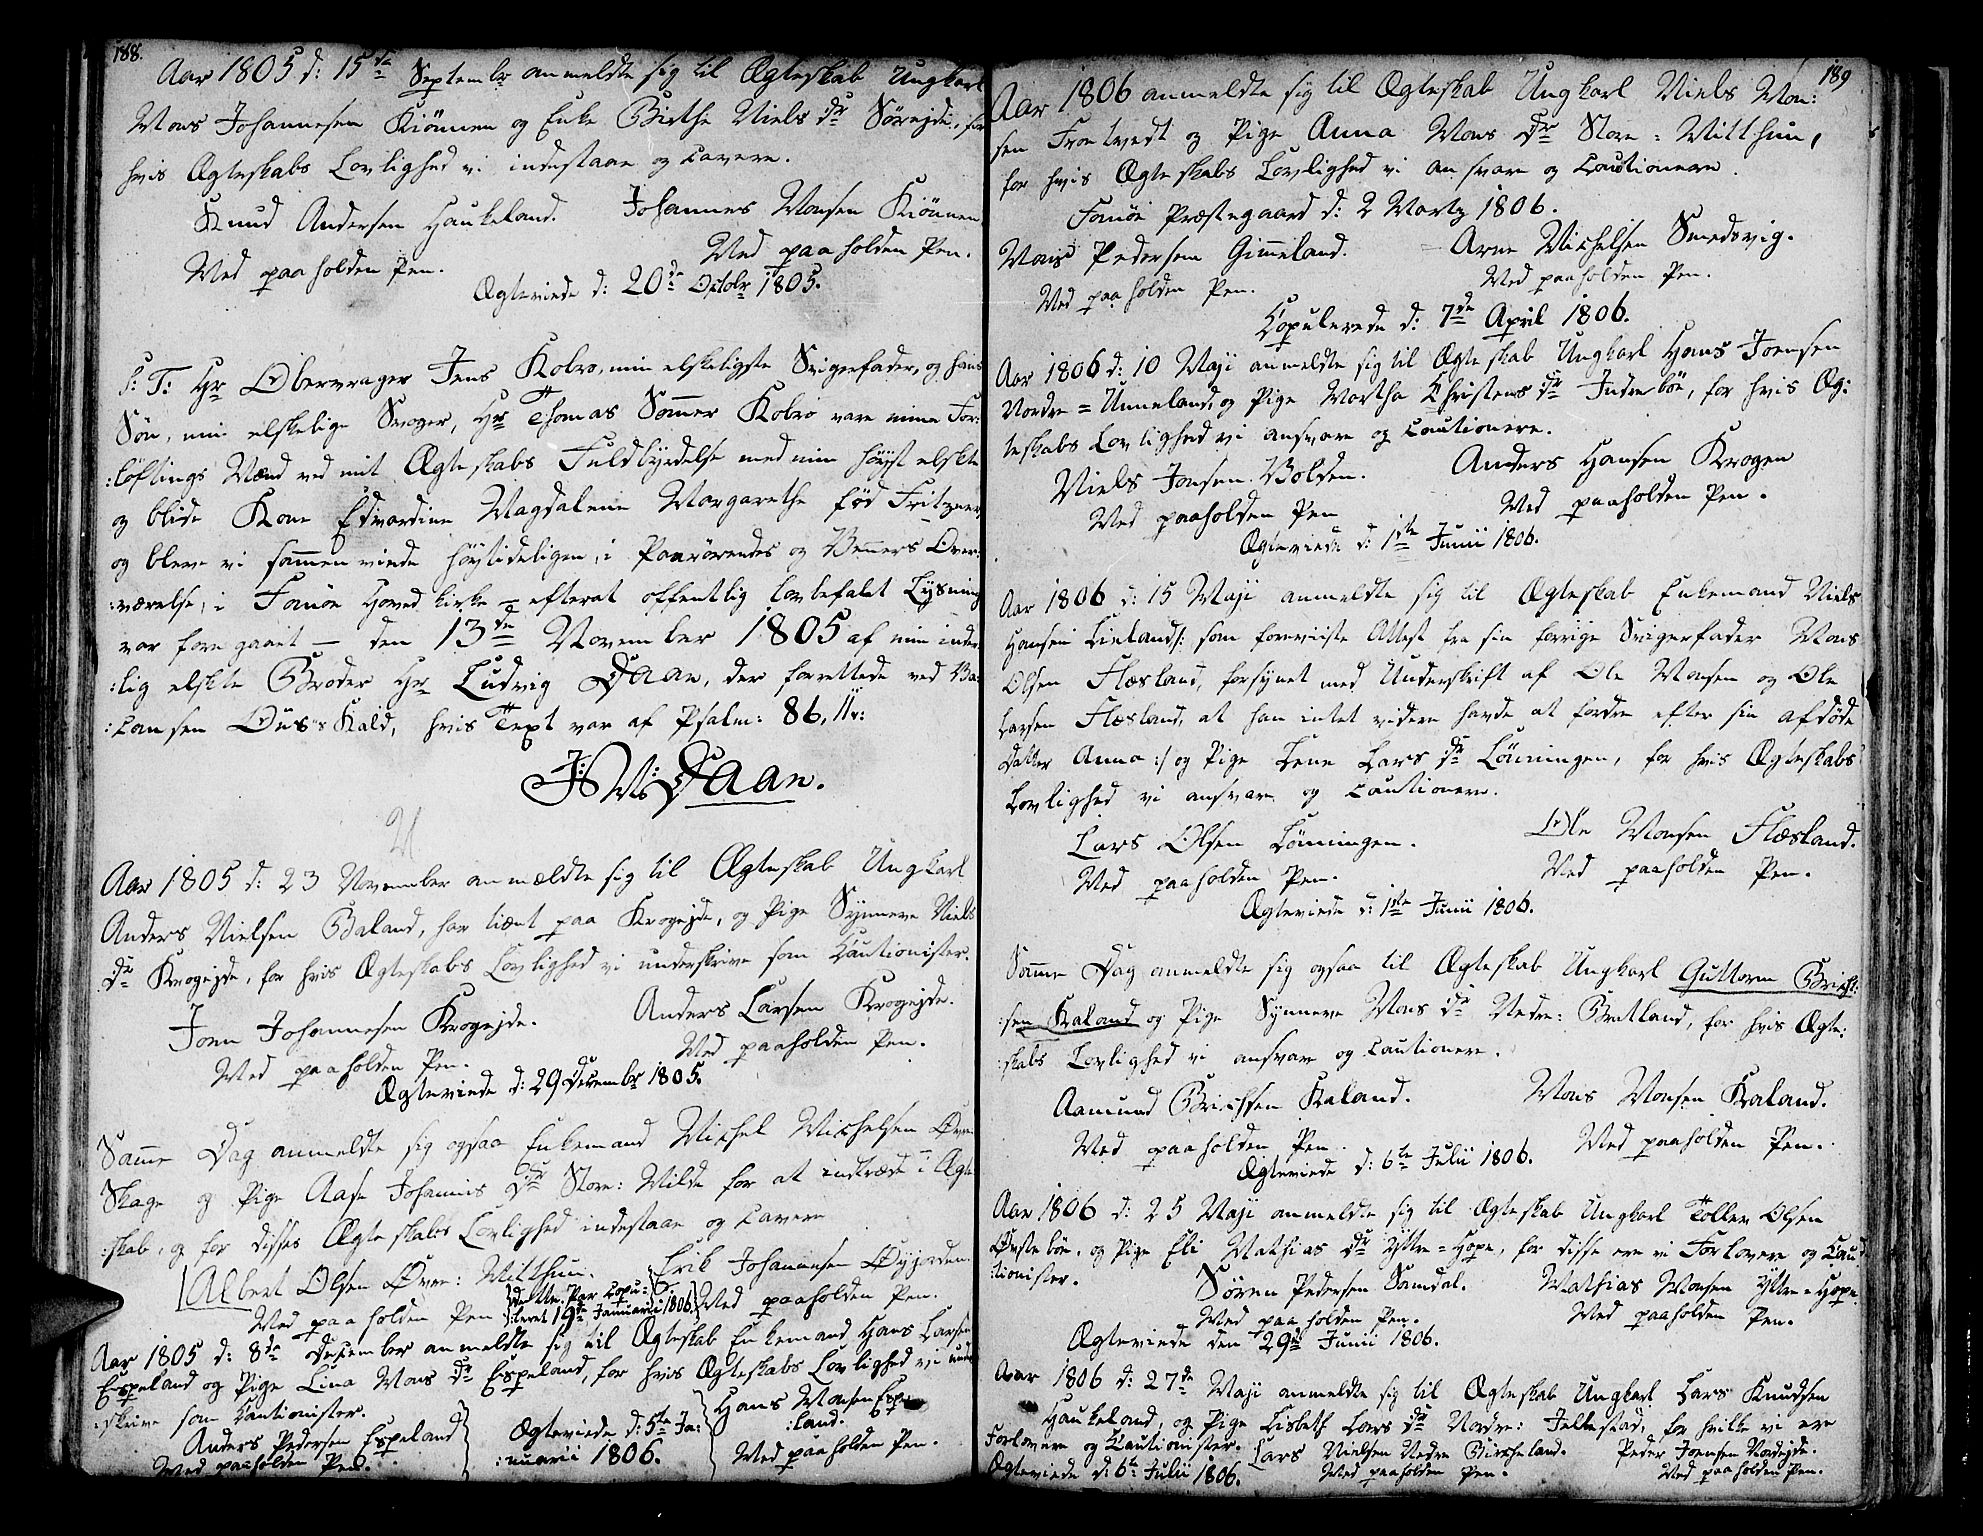 188.
Aar 1805 d: 15de Septembr anmeldte sig til Ægteskab Ungkarl
Mons Johannesen Kiönnen og Enke Birthe Niels Dr Sörejde, for
hvis Ægteskabs Lovlighed vi indestaae og cavere.
Knud Andersen Haukeland. Johannes Monsen Kiönnen
Med paaholden Pen. Med paaholden Pen.
Ægteviede d: 20de Octobr 1805.
S: T: Hr Obervrager Jens Kobro, min elskeligste Svigerfader, og hans
Søn, min elskelige Svoger, Hr Thomas Sommer Kobro vare mine For:
:løftings Mænd ved mit Ægteskabs Fuldbyrdelse med min høyst elskte
og blide Kone Edvardine Magdalene Margarethe fød Fritzner
og bleve vi sammenviede høytideligen, i Paarørendes og Venners Over:
:værelse, i Fanöe Hoved Kirke - efterat offentlig lovbefalet Lysning
var foregaaet - den 13de November 1805 af min inder
:lig elskte Broder Hr Ludvig Daae, der forrettede ved Va:
:cansen Ous's Kald, hvis Text var af Psalm: 86, 11v:
J: M: Daae.
Aar 1805 d: 23 November anmældte sig til Ægteskab Ungkarl
Anders Nielsen Baland, har tient paa Krogejde, og Pige Synneve Niels
Dr Krogejde, for hvis Ægteskabs Lovlighed vi underskrive som Cautionister.
Joen Johannesen Krogejde. Anders Larsen Krogejde.
Med paaholden Pen. Med paaholden Pen.
Ægteviede d: 29 Decembr 1805.
Samme Dag anmeldte sig ogsaa Enkemand Michel Michelsen Övre
Skage og Pige Aase Johannis Dr Store: Milde for at indtræde i Ægte
:skab, og for disses Ægteskabs Lovlighed indestaae og cavere
Albert Olsen Övre: Titthun. Erik Johannesen Öyjorden
Med paaholden Pen Dette Par copu:
:leret 19de Januarii 1806. Med paaholden Pen.
Aar 1805 d: 8de December anmeldte sig til Ægteskab Enkemand Hans Larsen
Espeland og Pige Lina Mons Dr Espeland, for hvis Ægteskabs Lovlighed vi under
:skrive som Cautionister. Hans Monsen Espe
Anders Pedersen Espeland Ægteviede d: 5te Ja: :land.
Med paaholden Pen. :nuarii 1806. Med paaholden Pen.
189
Aar 1806 anmeldte sig til Ægteskab Ungkarl Niels Mon:
sen Trætvedt og Pige Anna Mons Dr Store = Titthun,
for hvis Ægteskabs Lovlighed vi ansvare og Cautionere.
Fanöe Præstegaard d: 2 Martz 1806.
Mons Pedersen Gimmeland. Arne Michelsen Smedsvig.
Med paaholden Pen. Med paaholden Pen.
Copulerede d: 7de April 1806.
Aar 1806 d: 10 Maji anmeldte sig til Ægteskab Ungkarl Hans Joensen
Nordre = Unneland, og Pige Martha Christens Dr Indreböe, for hvis Æg:
teskabs Lovlighed vi ansvare og cautionere.
Niels Jonsen Bolden. Anders Hansen Krogen
Med paaholden Pen Med paaholden Pen.
Ægteviede d: 1ste Junii 1806.
Aar 1806 d: 15 Maji anmeldte sig til Ægteskab Enkemand Niels
Hansen Lieland /: som foreviiste Attest fra sin forrige Svigerfader Mons
Olsen Flæsland, forsynet med Underskrift af Ole Monsen og Ole
Larsen Flæsland, at han intet videre havde at fordre efter sin afdöde
Datter Anna :/ og Pige Lene Lars Dr Lönningen, for hvis Ægteskabs
Lovlighed vi ansvare og cautionere.
Lars Olsen Lönningen. Ole Monsen Flæsland.
Med paaholden Pen. Med paaholden Pen.
Ægteviede d: 1ste Junii 1806.
Samme Dag anmeldte sig ogsaa til Ægteskab Ungkarl Guttorm Brich:
:sen Kaland og Pige Synneve Mons Dr Nedre: Bratland, for hvis Ægte:
:skabs Lovlighed vi ansvare og cautionere.
Aamund Brichsen Kaland. Mons Monsen Kaland.
Med paaholden Pen. Med paaholden Pen.
Ægteviede d: 6te Julii 1806.
Aar 1806 d: 25 Maji anmeldte sig til Ægteskab Ungkarl Toller Olsen
Östeböe, og Pige Eli Mathias Dr Yttre = Hope, for disse ere vi Forlovere og Cau
:tionister. Sören Pedersen Samdal. Mathias Monsen Yttre = Hope.
Med paaholden Pen. Med paaholden Pen.
Ægteviede den 29de Junii 1806.
Aar 1806 d: 27de Maji anmeldte sig til Ægteskab Ungkarl Lars Knudsen
Haukeland, og Pige Lisbeth Lars Dr Nordre: Fellestad, for hvilke vi ere
Forlovere og Cautionister. Lars Nielsen Nedre Birkeland. Peder Joensen Nordejde.
Ægteviede d: 6te Julii 1806. Med paaholden Pen. Med paaholden Pen.